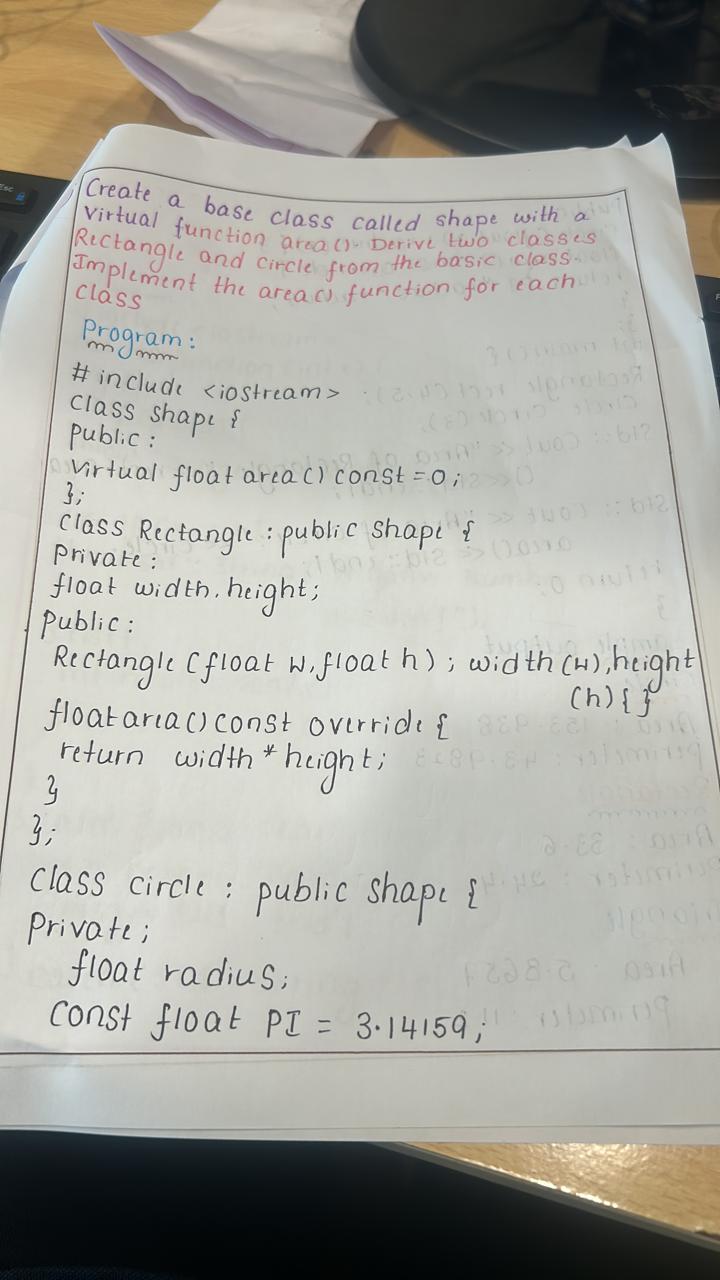 Create a base class called shape with a
virtual function area(). Derive two classes
Rectangle and circle from the basic class.
Implement the area() function for each
class
Program:
# include <iostream>
class shape {
Public:
virtual float area() const = 0;
};
class Rectangle : public shape {
Private:
float width, height;
Public:
Rectangle (float w, float h) ; width (w), height
(h) { }
float area() const override {
return width * height;
}
};
class circle : public shape {
Private;
float radius;
const float PI = 3.14159;
Esc